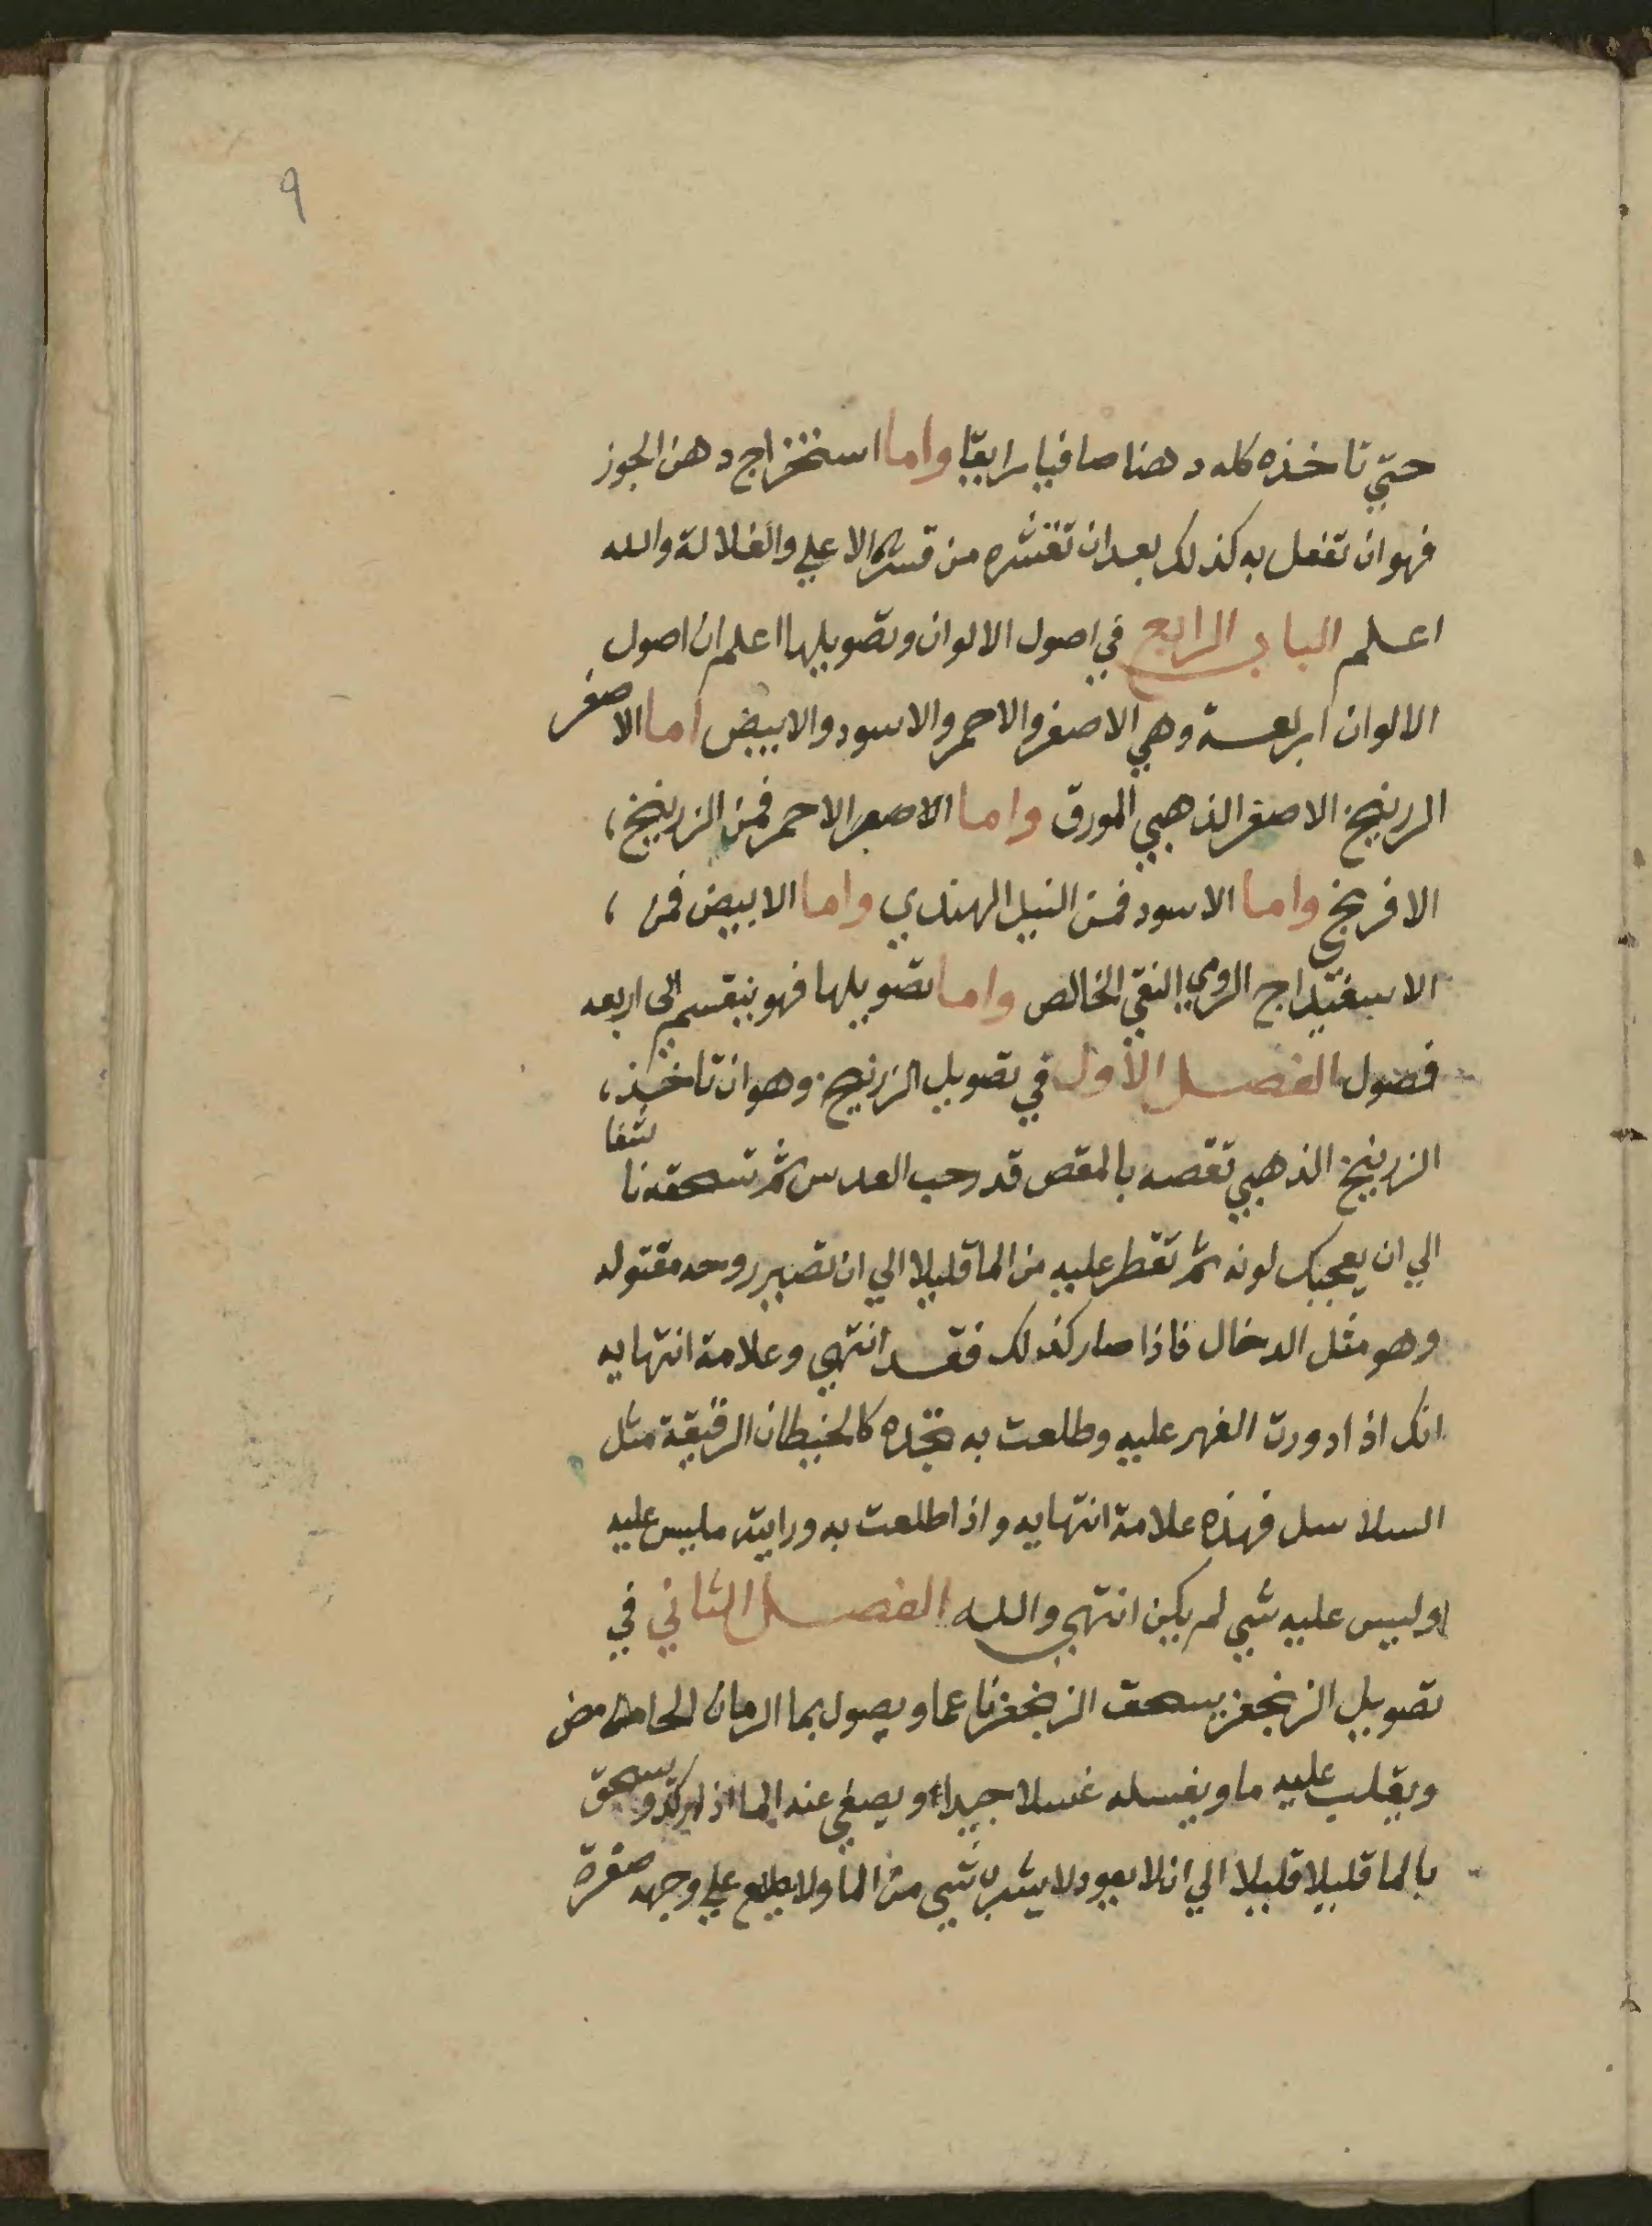 ٩
حتي تاخذه كله دهنا صافيا رايقا واما استخراج دهن الجوز
فهو ان تفعل به كذلك بعد ان تقشره من قشره الاعلي والغلالة والله
اعلم الباب الرابع في اصول الالوان وتصويلها اعلم ان اصول
الالوان اربعة وهي الاصفر والاحمر والاسود والابيض اما الاصفر
الزرنيخ الاصفر الذهبي المورق واما الاحمر فمن الزرنيخ
الافرنجي واما الاسود فمن النيل الهندي واما الابيض فمن
الاسفيداج الرومي النقي الخالص واما تصويلها فهو ينقسم الي اربعه
فصول الفصل الاول في تصويل الزرنيخ وهو ان تاخذ
الزرنيخ الذهبي تقصه بالمقص قدر حب العدس ثم تسحقه ناشفا
الي ان يعجبك لونه ثم تقطر عليه من الما قليلا الي ان تصير روحه مقتوله
وهو مثل الدخال فاذا صار كذلك فقد انتهي وعلامة انتهايه
انك اذا دورت الفهر عليه وطلعت به تجده كالخيطان الرقيقة مثل
السلاسل فهذه علامة انتهايه واذا طلعت به ورايته مليس عليه
اوليس عليه شي لم يكن انتهي والله الفصل الثاني في
تصويل الزنجفر يسحق الزنجفر ناعما ويصول بما الرمان الحامض
ويقلب عليه ما ويغسله غسلا جيدا ويصفي عنه الما اذا ركد ويسحق
بالما قليلا قليلا الي ان لا يعود لا يشرب شي من الما ولا يطلع علي وجهه صفرة